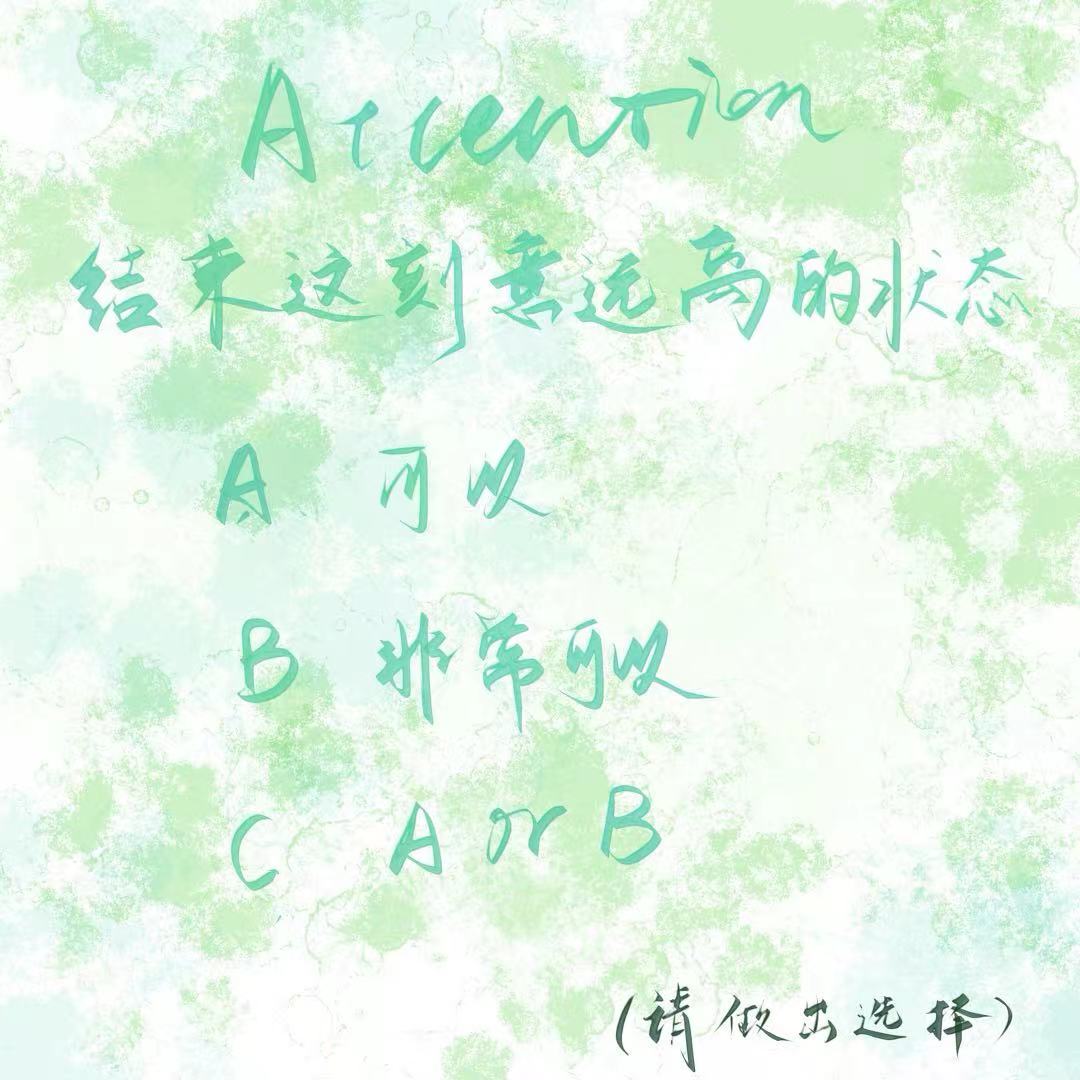 Attention
结束这刻意远离的状态
A 可以
B 非常可以
C A or B
(请做出选择)